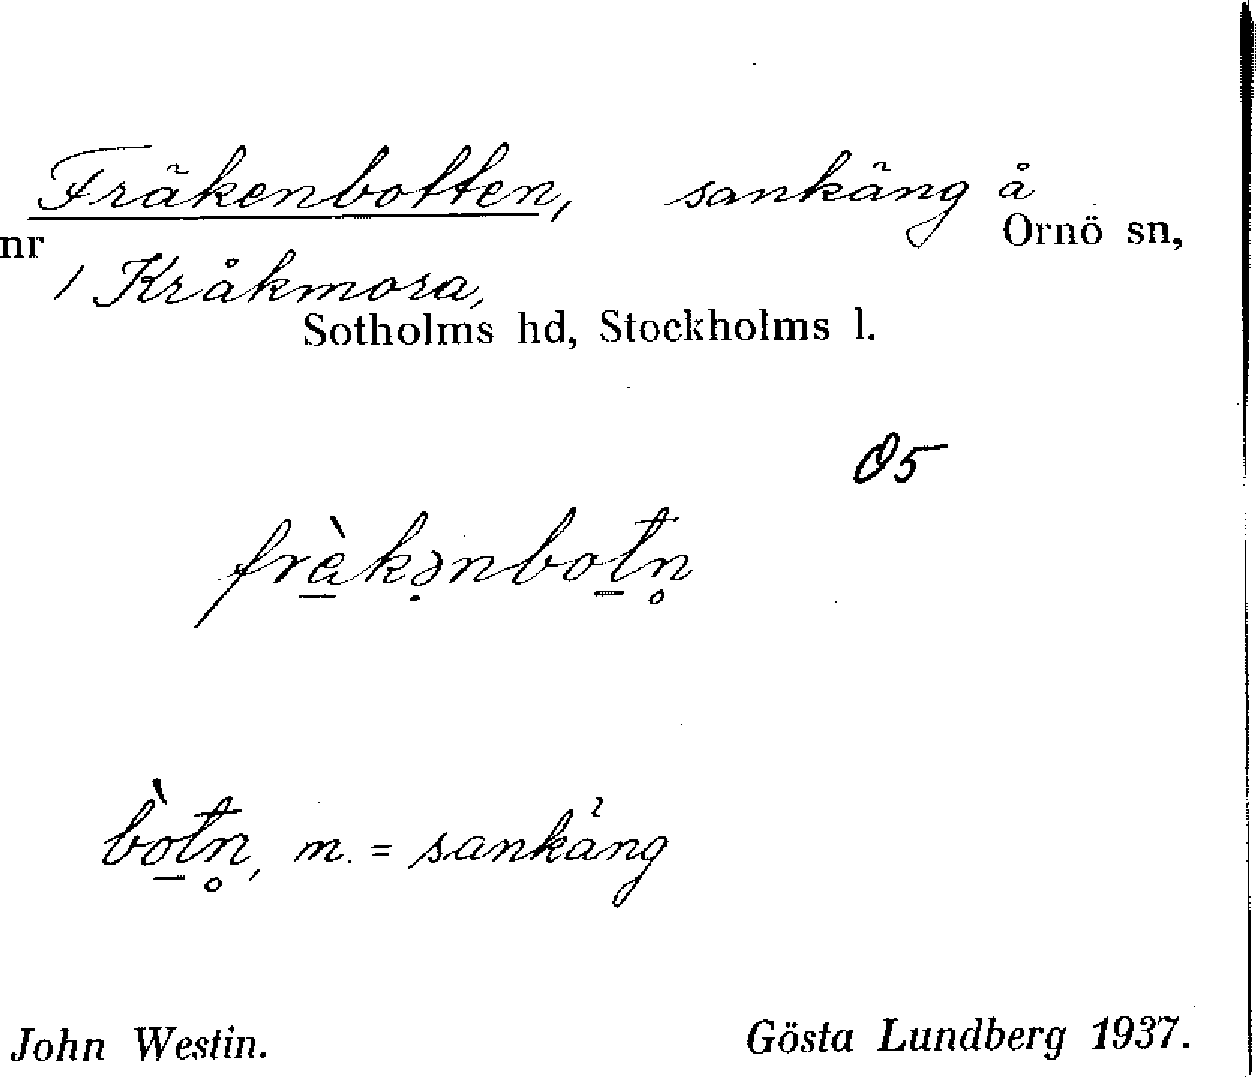 Fräkenbotten, sankäng å
nr Ornö sn,
1 Kråkmora,
Sotholms hd, Stockholms l.
Ö5
fràkənbotn̥
bòtn̥, m. = sankäng
John Westin. Gösta Lundberg 1937.